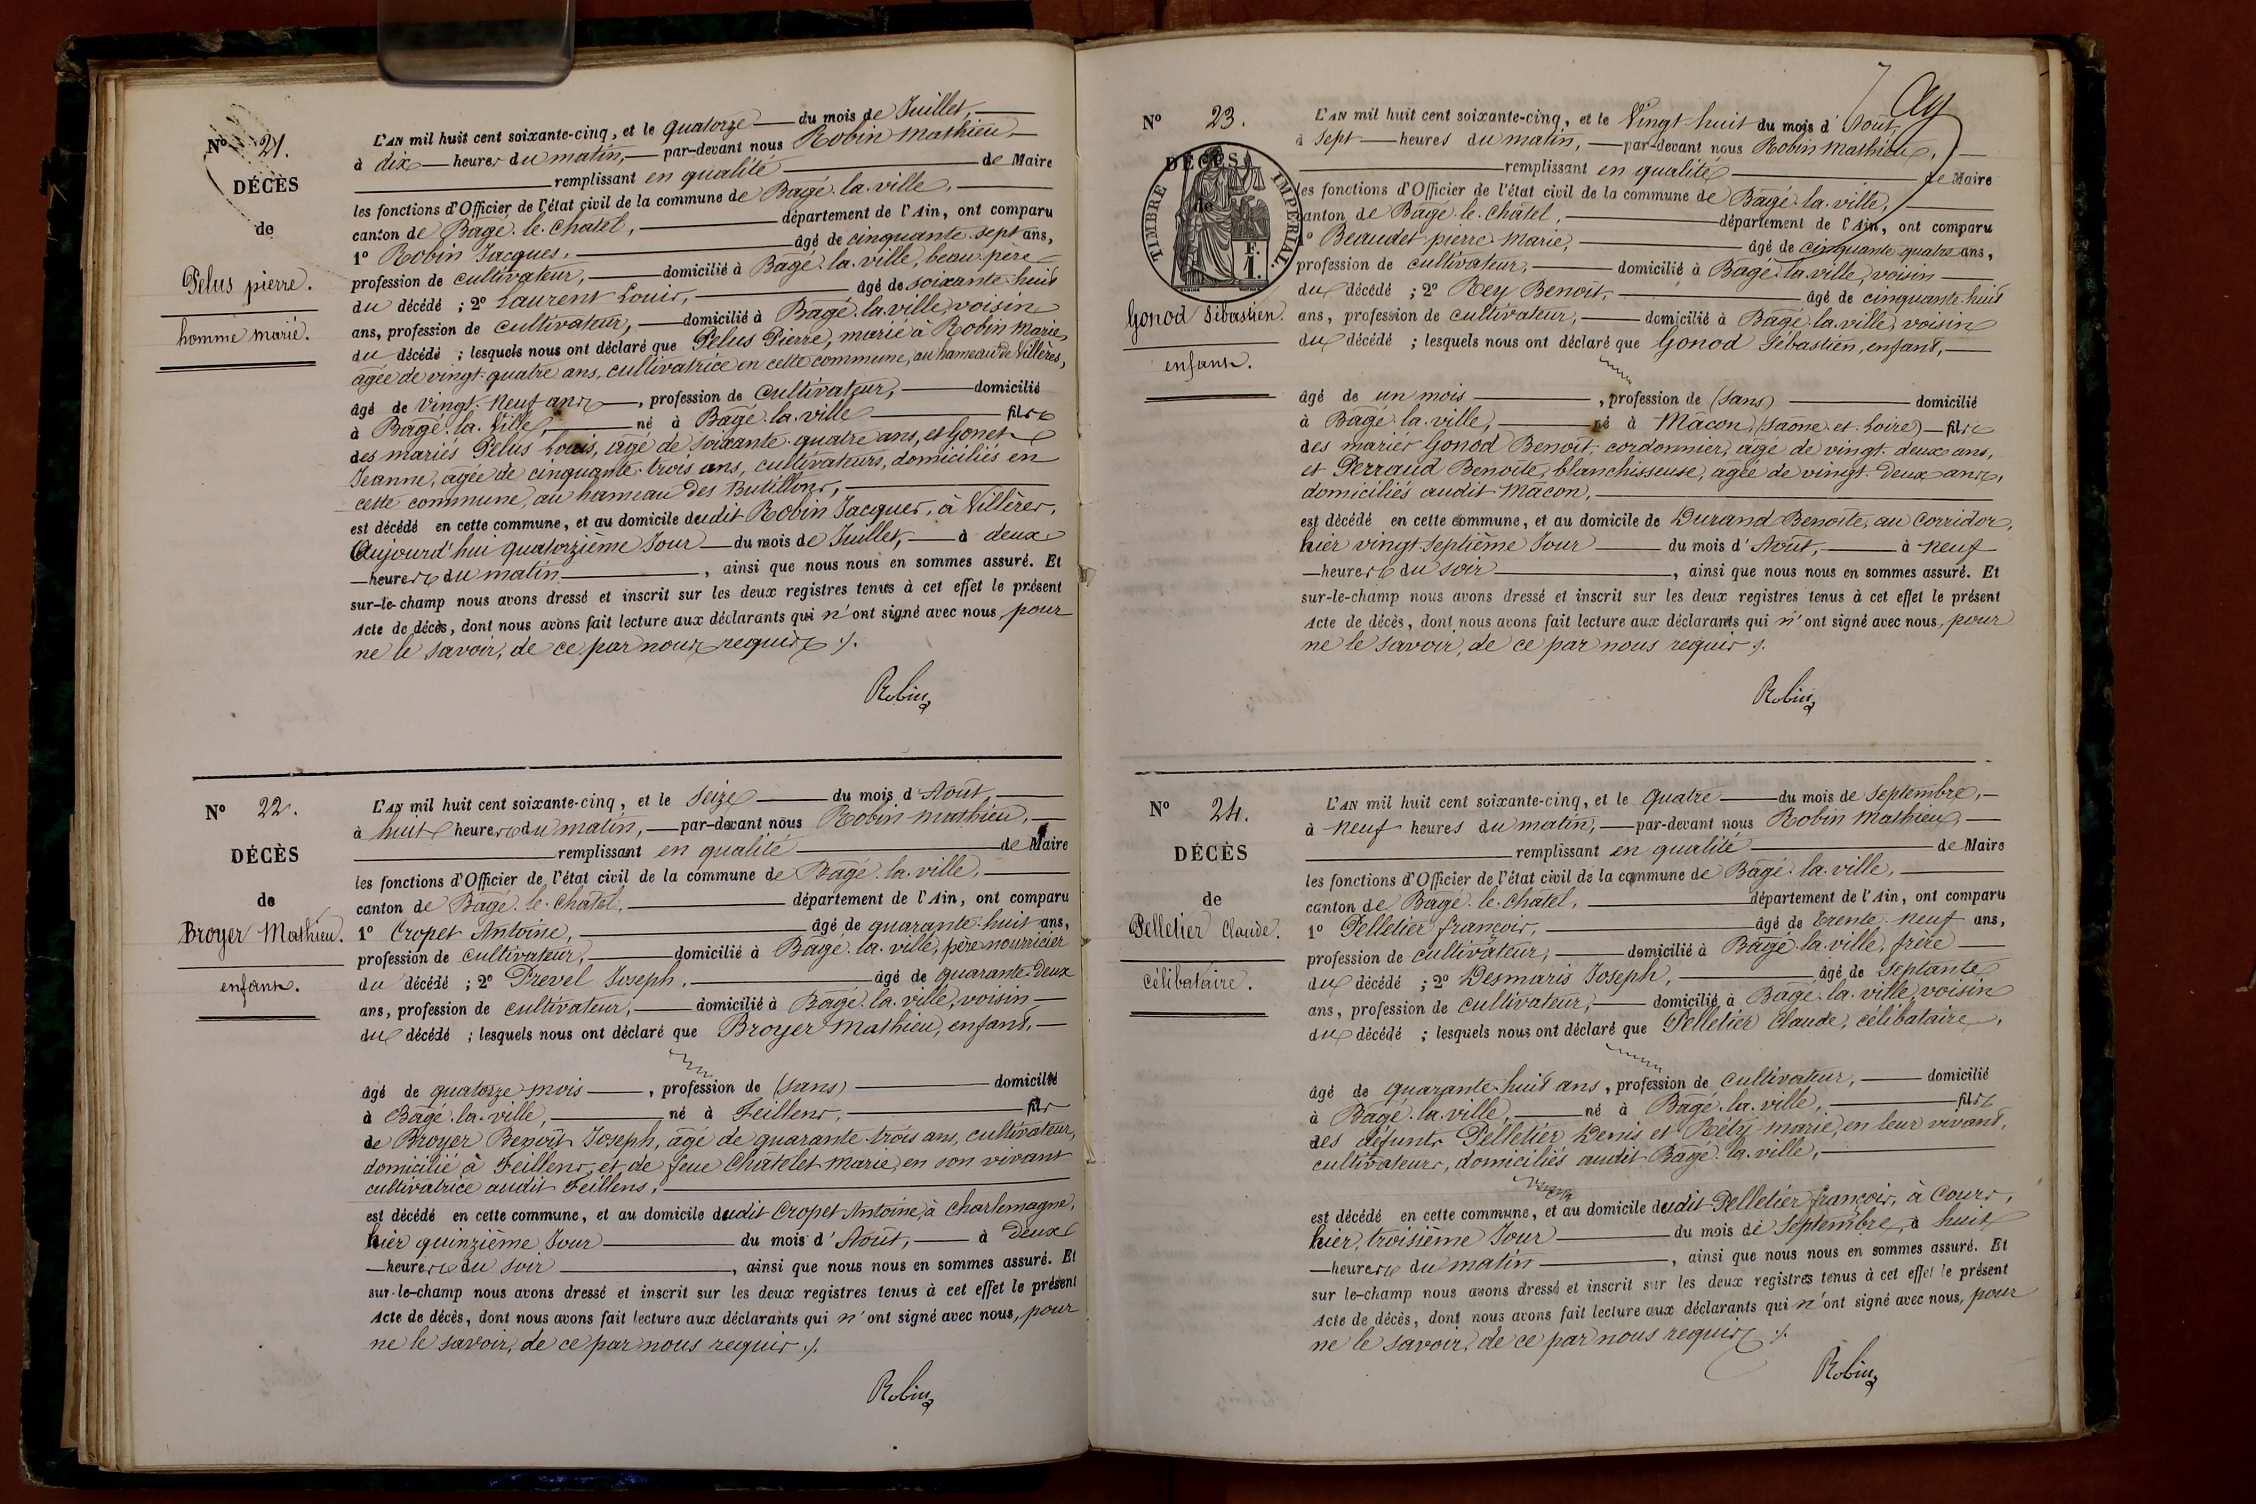 Nº 21.
DÉCÈS
de
Pelus pierre.
homme marié.
L'AN mil huit cent soixante-cinq, et le quatorze du mois de Juillet,
à dix heures du matin, par-devant nous Robin Mathieu
remplissant en qualité de Maire
les fonctions d'Officier de l'état civil de la commune de Bagé-la-ville,
canton de Bagé-le-Chatel, département de l'Ain, ont comparu
1º Robin Jacques, âgé de cinquante-sept ans,
profession de cultivateur, domicilié à Bagé-la-ville, beau-père
du décédé ; 2º Laurent Louis, âgé de soixante-huit
ans, profession de cultivateur, domicilié à Bagé-la-ville, voisin
du décédé ; lesquels nous ont déclaré que Pelus Pierre, marié à Robin Marie,
agée de vingt-quatre ans, cultivatrice en cette commune, au hameau de Villères,
âgé de vingt-neuf ans, profession de cultivateur, domicilié
à Bagé-la-Ville, né à Bagé-la-ville fils
des mariés Pelus Louis, agé de soixante-quatre ans, et Gonet
Jeanne, agée de cinquante-trois ans, cultivateurs, domiciliés en
cette commune, au hameau des Butillons,
est décédé en cette commune, et au domicile dudit Robin Jacques, à Villères,
Aujourd'hui quatorzième Jour du mois de Juillet, à deux
heures du matin, ainsi que nous nous en sommes assuré. Et
sur-le-champ nous avons dressé et inscrit sur les deux registres tenus à cet effet le présent
Acte de décès, dont nous avons fait lecture aux déclarants qui n'ont signé avec nous, pour
ne le savoir, de ce par nous requis ./.
Robin
Nº 22.
DÉCÈS
de
Broyer Mathieu.
enfant.
L'AN mil huit cent soixante-cinq, et le Seize du mois d'Août,
à huit heures du matin, par-devant nous Robin Mathieu,
remplissant en qualité de Maire
les fonctions d'Officier de l'état civil de la commune de Bagé-la-ville,
canton de Bagé-le-Chatel, département de l'Ain, ont comparu
1º Cropet Antoine, âgé de quarante-huit ans,
profession de cultivateur, domicilié à Bagé-la-ville, père nourricier
du décédé ; 2º Prevel Joseph, âgé de quarante-deux
ans, profession de cultivateur, domicilié à Bagé-la-ville, voisin
du décédé ; lesquels nous ont déclaré que Broyer Mathieu, enfant,
âgé de quatorze mois, profession de (sans) domicilié
à Bagé-la-ville, né à Feillens, fils
de Broyer Benoît Joseph, âgé de quarante-trois ans, cultivateur,
domicilié à Feillens, et de feue Châtelet Marie, en son vivant
cultivatrice audit Feillens,
est décédé en cette commune, et au domicile dudit Cropet Antoine, à Charlemagne,
hier quinzième Jour du mois d'Août, à deux
heures du soir, ainsi que nous nous en sommes assuré. Et
sur-le-champ nous avons dressé et inscrit sur les deux registres tenus à cet effet le présent
Acte de décès, dont nous avons fait lecture aux déclarants qui n'ont signé avec nous, pour
ne le savoir, de ce par nous requis ./.
Robin
7
Nº 23.
DÉCÈS
de
TIMBRE IMPÉRIAL
F.
1.
Gonod Sébastien.
enfant.
L'AN mil huit cent soixante-cinq, et le Vingt-huit du mois d'Août,
à sept heures du matin, par-devant nous Robin Mathieu,
remplissant en qualité de Maire
les fonctions d'Officier de l'état civil de la commune de Bagé-la-ville,
canton de Bagé-le-Châtel, département de l'Ain, ont comparu
1º Beaudet pierre Marie, âgé de cinquante-quatre ans,
profession de cultivateur, domicilié à Bagé-la-ville, voisin
du décédé ; 2º Rey Benoit, âgé de cinquante-huit
ans, profession de cultivateur, domicilié à Bagé-la-ville, voisin
du décédé ; lesquels nous ont déclaré que Gonod Sébastien, enfant,
âgé de un mois, profession de (sans) domicilié
à Bagé-la-ville, né à Mâcon, (Saône-et-Loire) fils
des mariés Gonod Benoît, cordonnier, âgé de vingt-deux ans,
et Perraud Benoite, blanchisseuse, agée de vingt-deux ans,
domiciliés audit Mâcon,
est décédé en cette commune, et au domicile de Durand Benoite, au Corridor,
hier vingt-septième Jour du mois d'Août, à neuf
heures du soir, ainsi que nous nous en sommes assuré. Et
sur-le-champ nous avons dressé et inscrit sur les deux registres tenus à cet effet le présent
Acte de décès, dont nous avons fait lecture aux déclarants qui n'ont signé avec nous, pour
ne le savoir, de ce par nous requis ./.
Robin
Nº 24.
DÉCÈS
de
Pelletier Claude.
célibataire.
L'AN mil huit cent soixante-cinq, et le quatre du mois de Septembre,
à neuf heures du matin, par-devant nous Robin Mathieu,
remplissant en qualité de Maire
les fonctions d'Officier de l'état civil de la commune de Bagé-la-ville,
canton de Bagé-le-Châtel, département de l'Ain, ont comparu
1º Pelletier françois, âgé de trente-neuf ans,
profession de cultivateur, domicilié à Bagé-la-ville, frère
du décédé ; 2º Desmaris Joseph, âgé de septante
ans, profession de cultivateur, domicilié à Bagé-la-ville, voisin
du décédé ; lesquels nous ont déclaré que Pelletier Claude, célibataire,
âgé de quarante-huit ans, profession de cultivateur, domicilié
à Bagé-la-ville, né à Bagé-la-ville, fils
des défunts Pelletier Denis et Rély marie, en leur vivant,
cultivateurs, domiciliés audit Bagé-la-ville,
est décédé en cette commune, et au domicile dudit Pelletier françois, à Cours,
hier, troisième Jour du mois de Septembre, à huit
heures du matin, ainsi que nous nous en sommes assuré. Et
sur le-champ nous avons dressé et inscrit sur les deux registres tenus à cet effet le présent
Acte de décès, dont nous avons fait lecture aux déclarants qui n'ont signé avec nous, pour
ne le savoir, de ce par nous requis ./.
Robin